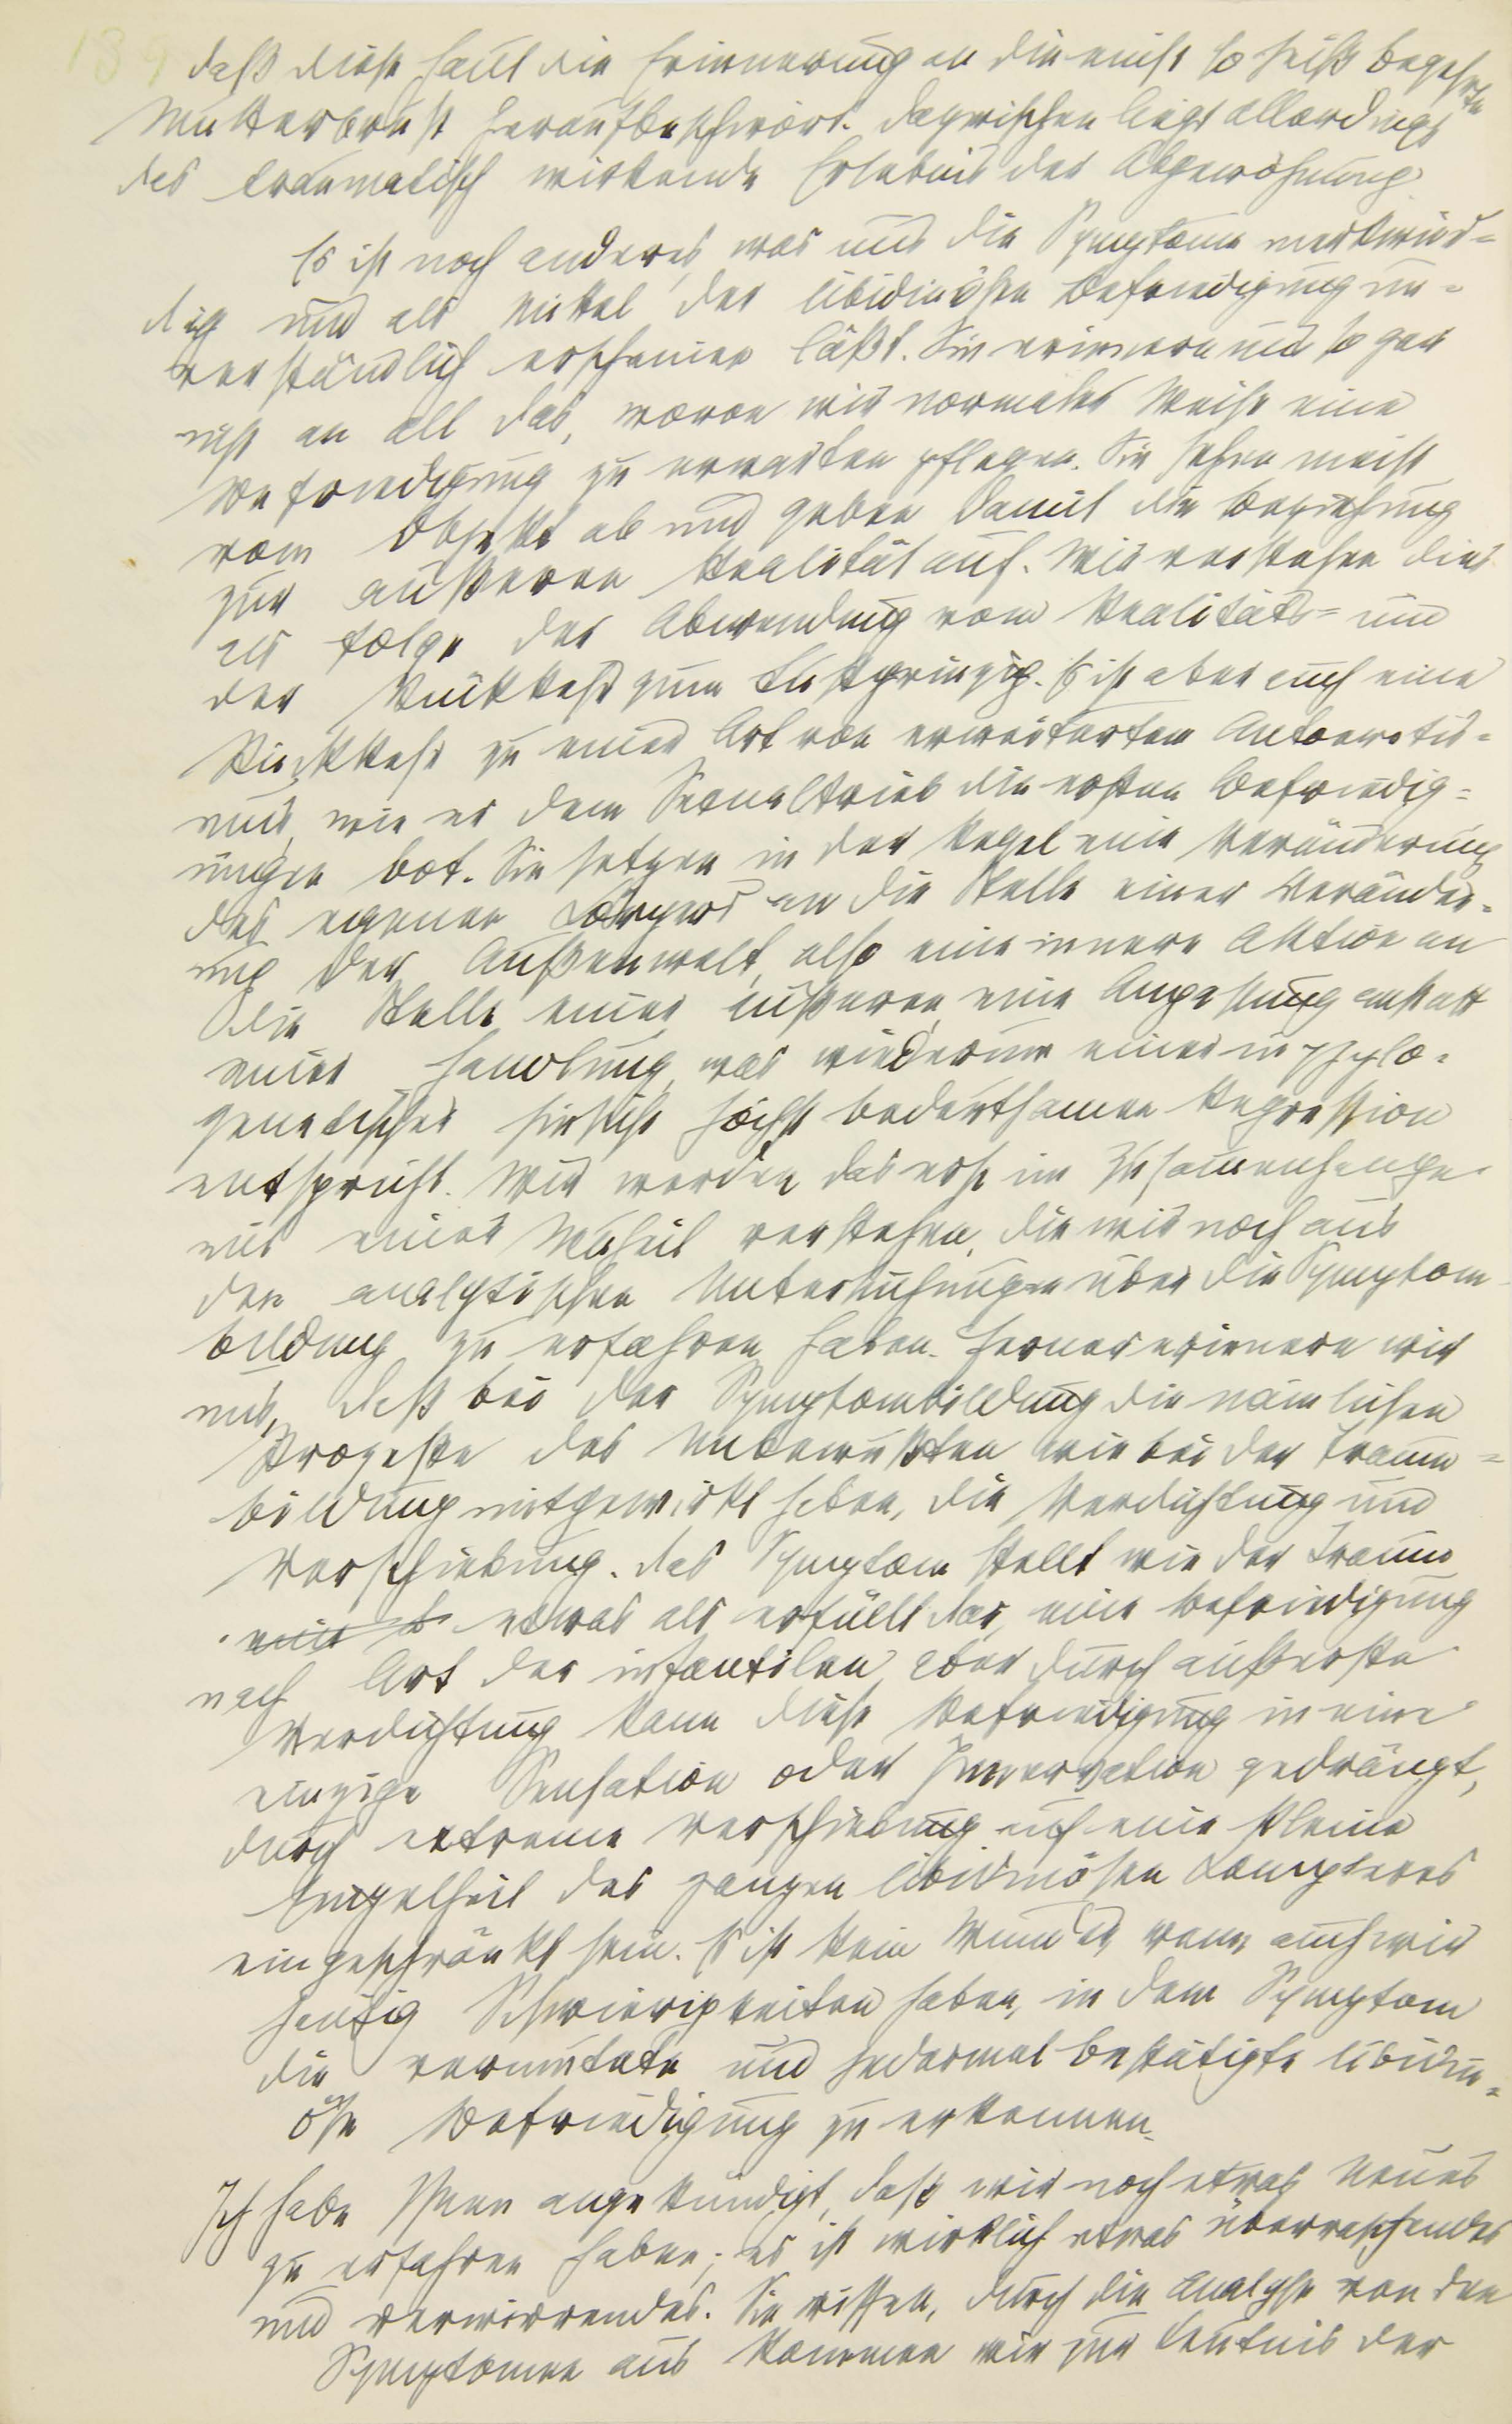 189
daß diese Haut die Erinnerung an die einst so heiß begehrte
Mutterbrust heraufbeschwört. Dazwischen liegt allerdings
das traumatisch wirkende Erlebnis der Abgewöhnung.
Es ist noch anderes, was uns die Symptome merkwür=
dig und als Mittel der libidinösen Befriedigung un=
verständlich erscheinen läßt. Sie erinnern uns so gar
nicht an all das, wovon wir normaler Weise eine
Befriedigung zu erwarten pflegen. Sie sehen meist
vom Objekt ab und geben damit die Beziehung
zur äußeren Realität auf. Wir verstehen dies
als Folge der Abwendung vom Realitäts= und
der Rückkehr zum Lustprinzip. Es ist aber auch eine
Rückkehr zu einer Art von erweiterten Autoerotis=
mus, wie er dem Sexualtrieb die ersten Befriedig=
ungen bot. Sie setzen in der Regel eine Veränderung
des eigenen Körpers an die Stelle einer Veränder=
ung der Außenwelt, also eine innere Aktion an
die Stelle einer äußeren, eine Anpassung anstatt
einer Handlung, was wiederum einer in phylo=
genetischer Hinsicht höchst bedeutsamen Regression
entspricht. Wir werden das erst im Zusammenhange
mit einer Neuheit verstehen, die wir noch aus
den analytischen Untersuchungen über die Symptom
bildung zu erfahren haben. Ferner erinnern wir
uns, daß bei der Symptombildung die nämlichen
Prozesse des Unbewußten wie bei der Traum=
bildung mitgewirkt haben, die Verdichtung und
Verschiebung. Das Symptom stellt wie der Traum
etwas als erfüllt dar, eine Befriedigung
nach Art der infantilen, aber durch äußerste
Verdichtung kann diese Befriedigung in eine
einzige Sensation oder Innervation gedrängt,
durch extreme Verschiebung auf eine kleine
Einzelheit des ganzen libidinösen Komplexes
eingeschränkt sein. Es ist kein Wunder, wenn auch wir
häufig Schwierigkeiten haben, in dem Symptom
die vermutete und jedesmal bestätigte libidin=
öse Befriedigung zu erkennen.
Ich habe Ihnen angekündigt, daß wir noch etwas Neues
zu erfahren haben; es ist wirklich etwas überraschendes
und verwirrendes. Sie wissen, durch die Analyse von den
Symptomen aus kommen wir zur Kenntnis der